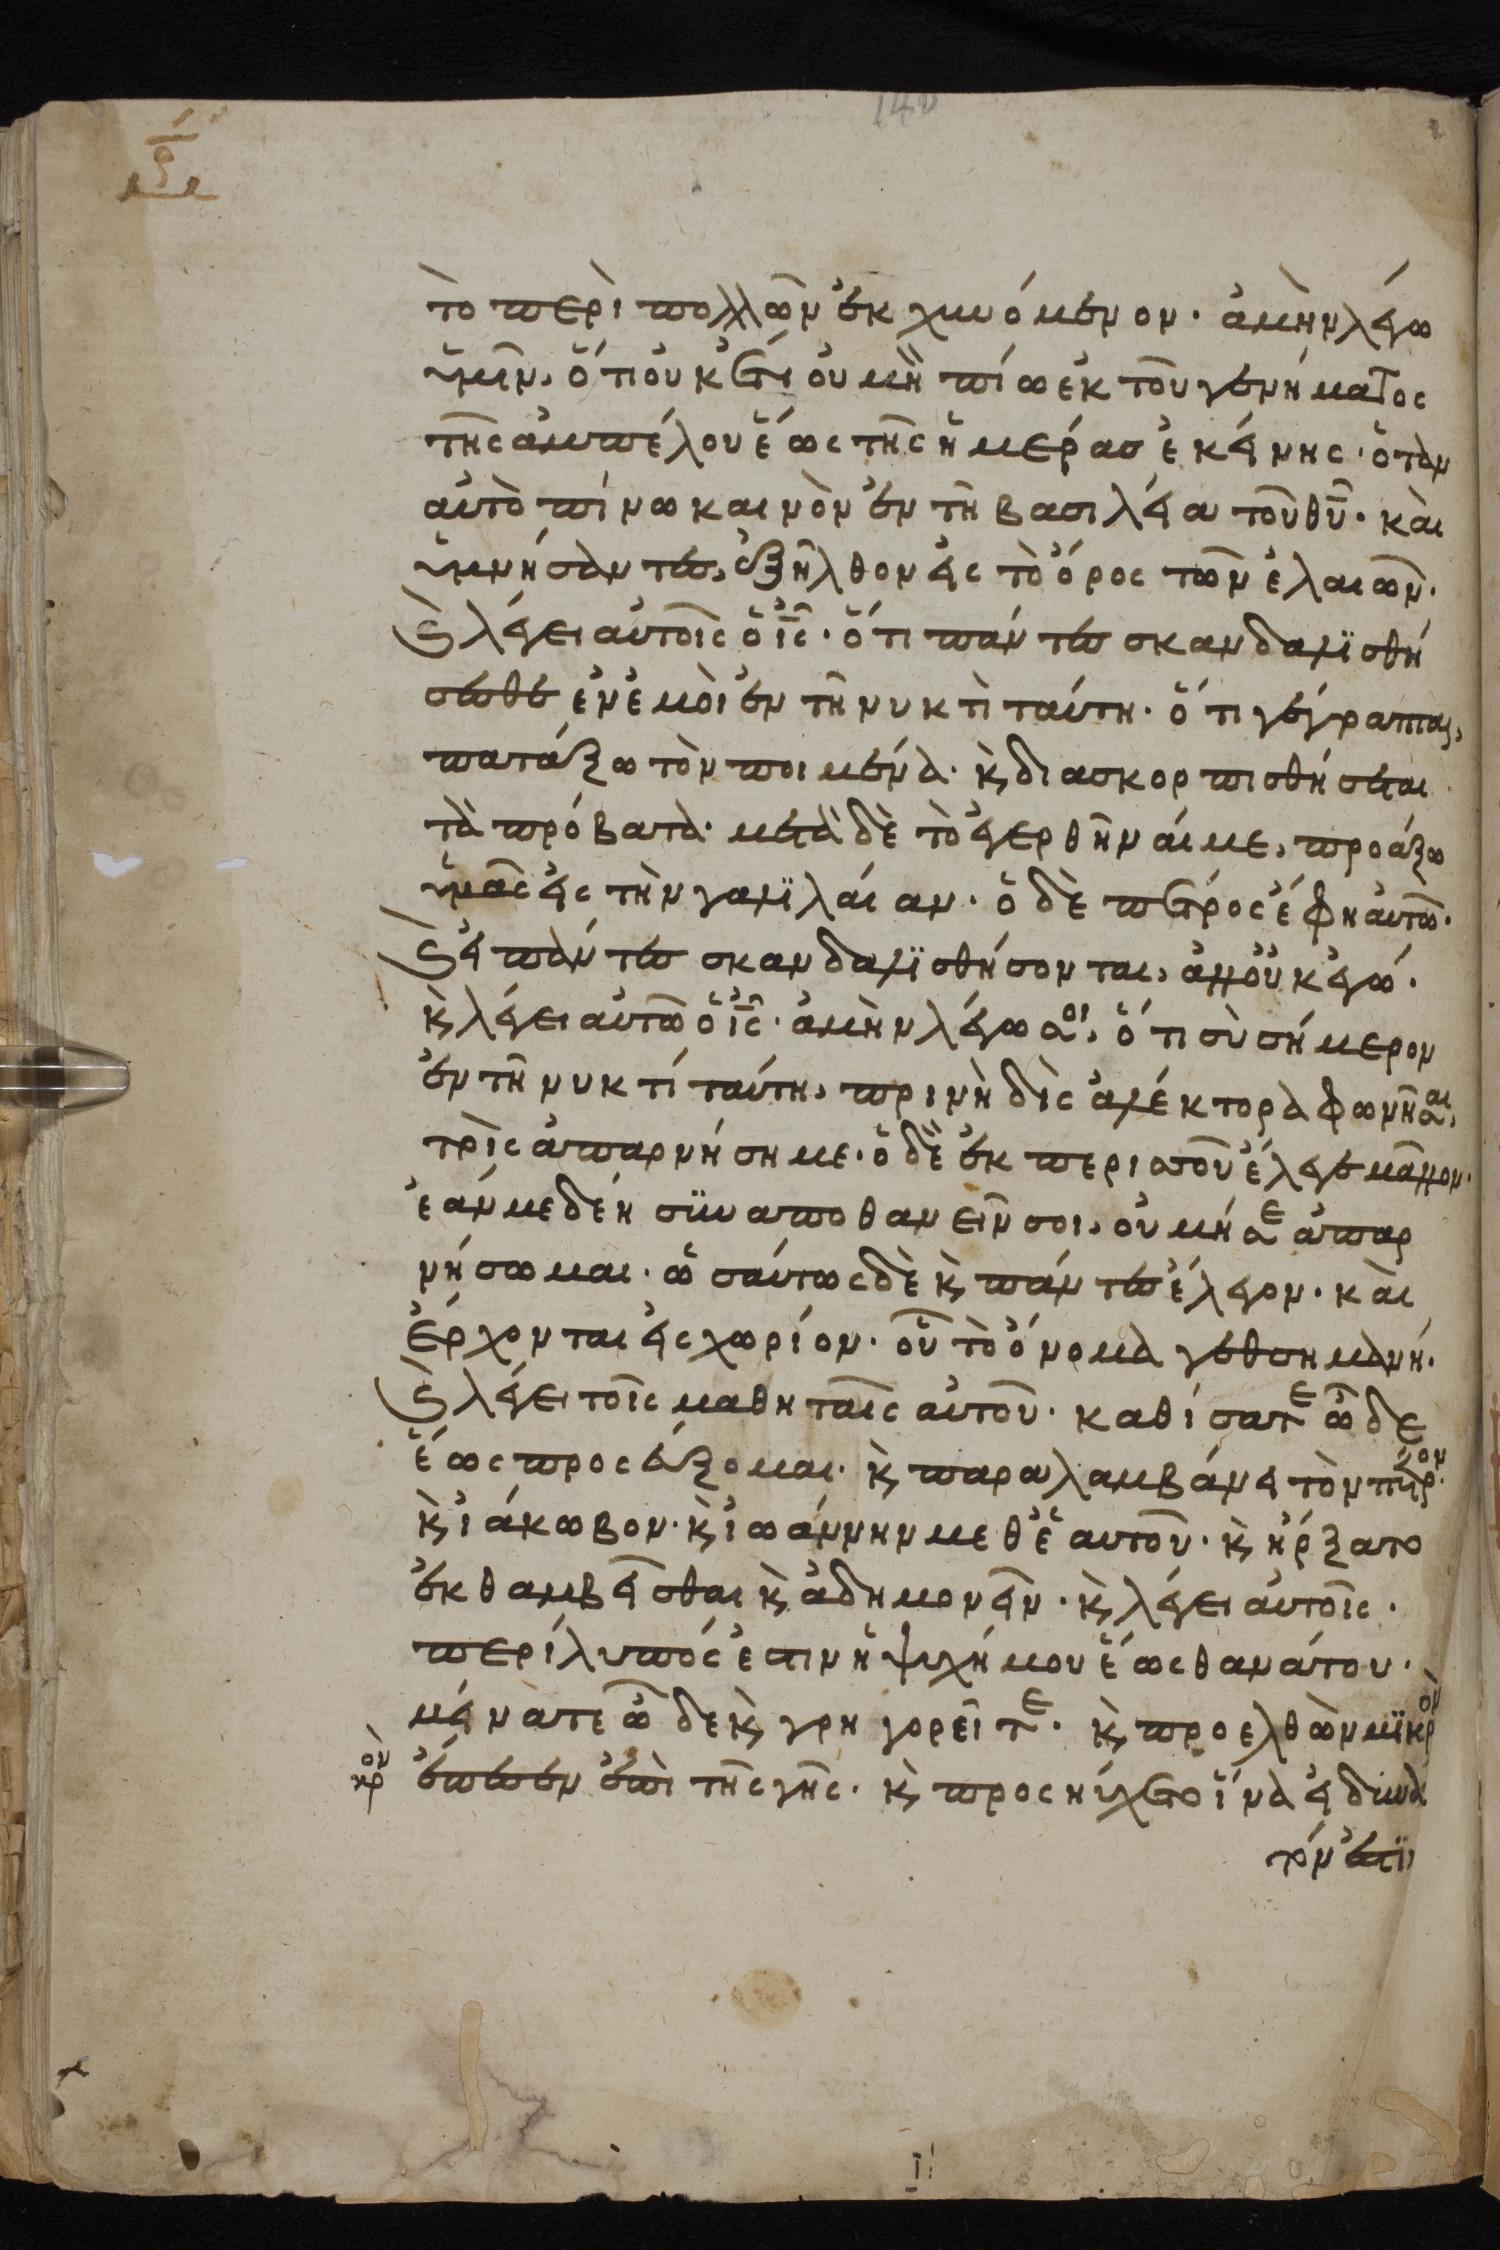 τὸ περὶ πολλῶν ἐκχυνόμενον· ἀμὴν λέγω
ὑμῖν, ὅτι οὐκέτι οὐ μὴ πίω ἐκ τοῦ γεννήματος
τῆς ἀμπέλου ἕως τῆς ἡμέρας ἐκείνης· ὅταν
αὐτὸ πίνω καινὸν ἐν τῇ βασιλεία τοῦ θῦ· καὶ
ὑμνήσαντες, ἐξῆλθον εἰς τὸ ὄρος τῶν ἐλαιῶν·
ϗ λέγει αὐτοῖς ὁ ἰς· ὅτι πάντες σκανδαλϊσθή
σεσθε ἐν ἐμοὶ ἐν τῆ νυκτὶ ταύτη· ὅτι γέγραπται,
πατάξω τὸν ποιμένα· ϗ διασκορπισθήσεται
τὰ πρόβατα· μετὰ δὲ τὸ ἐγερθῆναί με, προάξω
ὑμᾶς εἰς τὴν γαλϊλαίαν· ὁ δὲ πέτρος ἔφη αὐτῶ·
ϗ εἰ πάντες σκανδαλϊσθήσονται, ἀλλ οὐκ ἐγώ·
ϗ λέγει αὐτῶ ὁ ἰς· ἀμὴν λέγω σοι, ὅτι σὺ σήμερον
ἐν τῆ νυκτὶ ταύτη, πρὶν ἢ δὶς ἀλέκτορα φωνῆσαι,
τρὶς ἀπαρνήση με· ὁ δὲ ἐκ περισσοῦ ἔλεγε μᾶλλον·
ἐάν με δέη συναποθανεῖν σοι, οὐ μή σε ἀπαρ
νήσωμαι· ὡσαύτως δὲ ϗ πάντες ἔλεγον· καὶ
ἔρχονται εἰς χωρίον· οὗ τὸ ὄνομα γεθσημανή·
ϗ λέγει τοῖς μαθηταῖς αὐτοῦ· καθίσατε ὧδε
ἕως προσεύξομαι· ϗ παραλαμβάνει τὸν πέτρον·
ϗ ἰάκωβον· ϗ ἰωάννην μεθ ἑαυτοῦ· ϗ ἤρξατο
ἐκθαμβεῖσθαι ϗ ἀδημονεῖν· ϗ λέγει αὐτοῖς·
περίλυπός ἐστιν ἡ ψυχή μου ἕως θανάτου·
μείνατε ὧδε ϗ γρηγορεῖτε· ϗ προελθὼν μϊκρὸν
κρὸν ἔπεσεν ἐπὶ τῆς γῆς· ϗ προσηύχετο ἵνα εἰ δυνα
τόν ἐστϊ